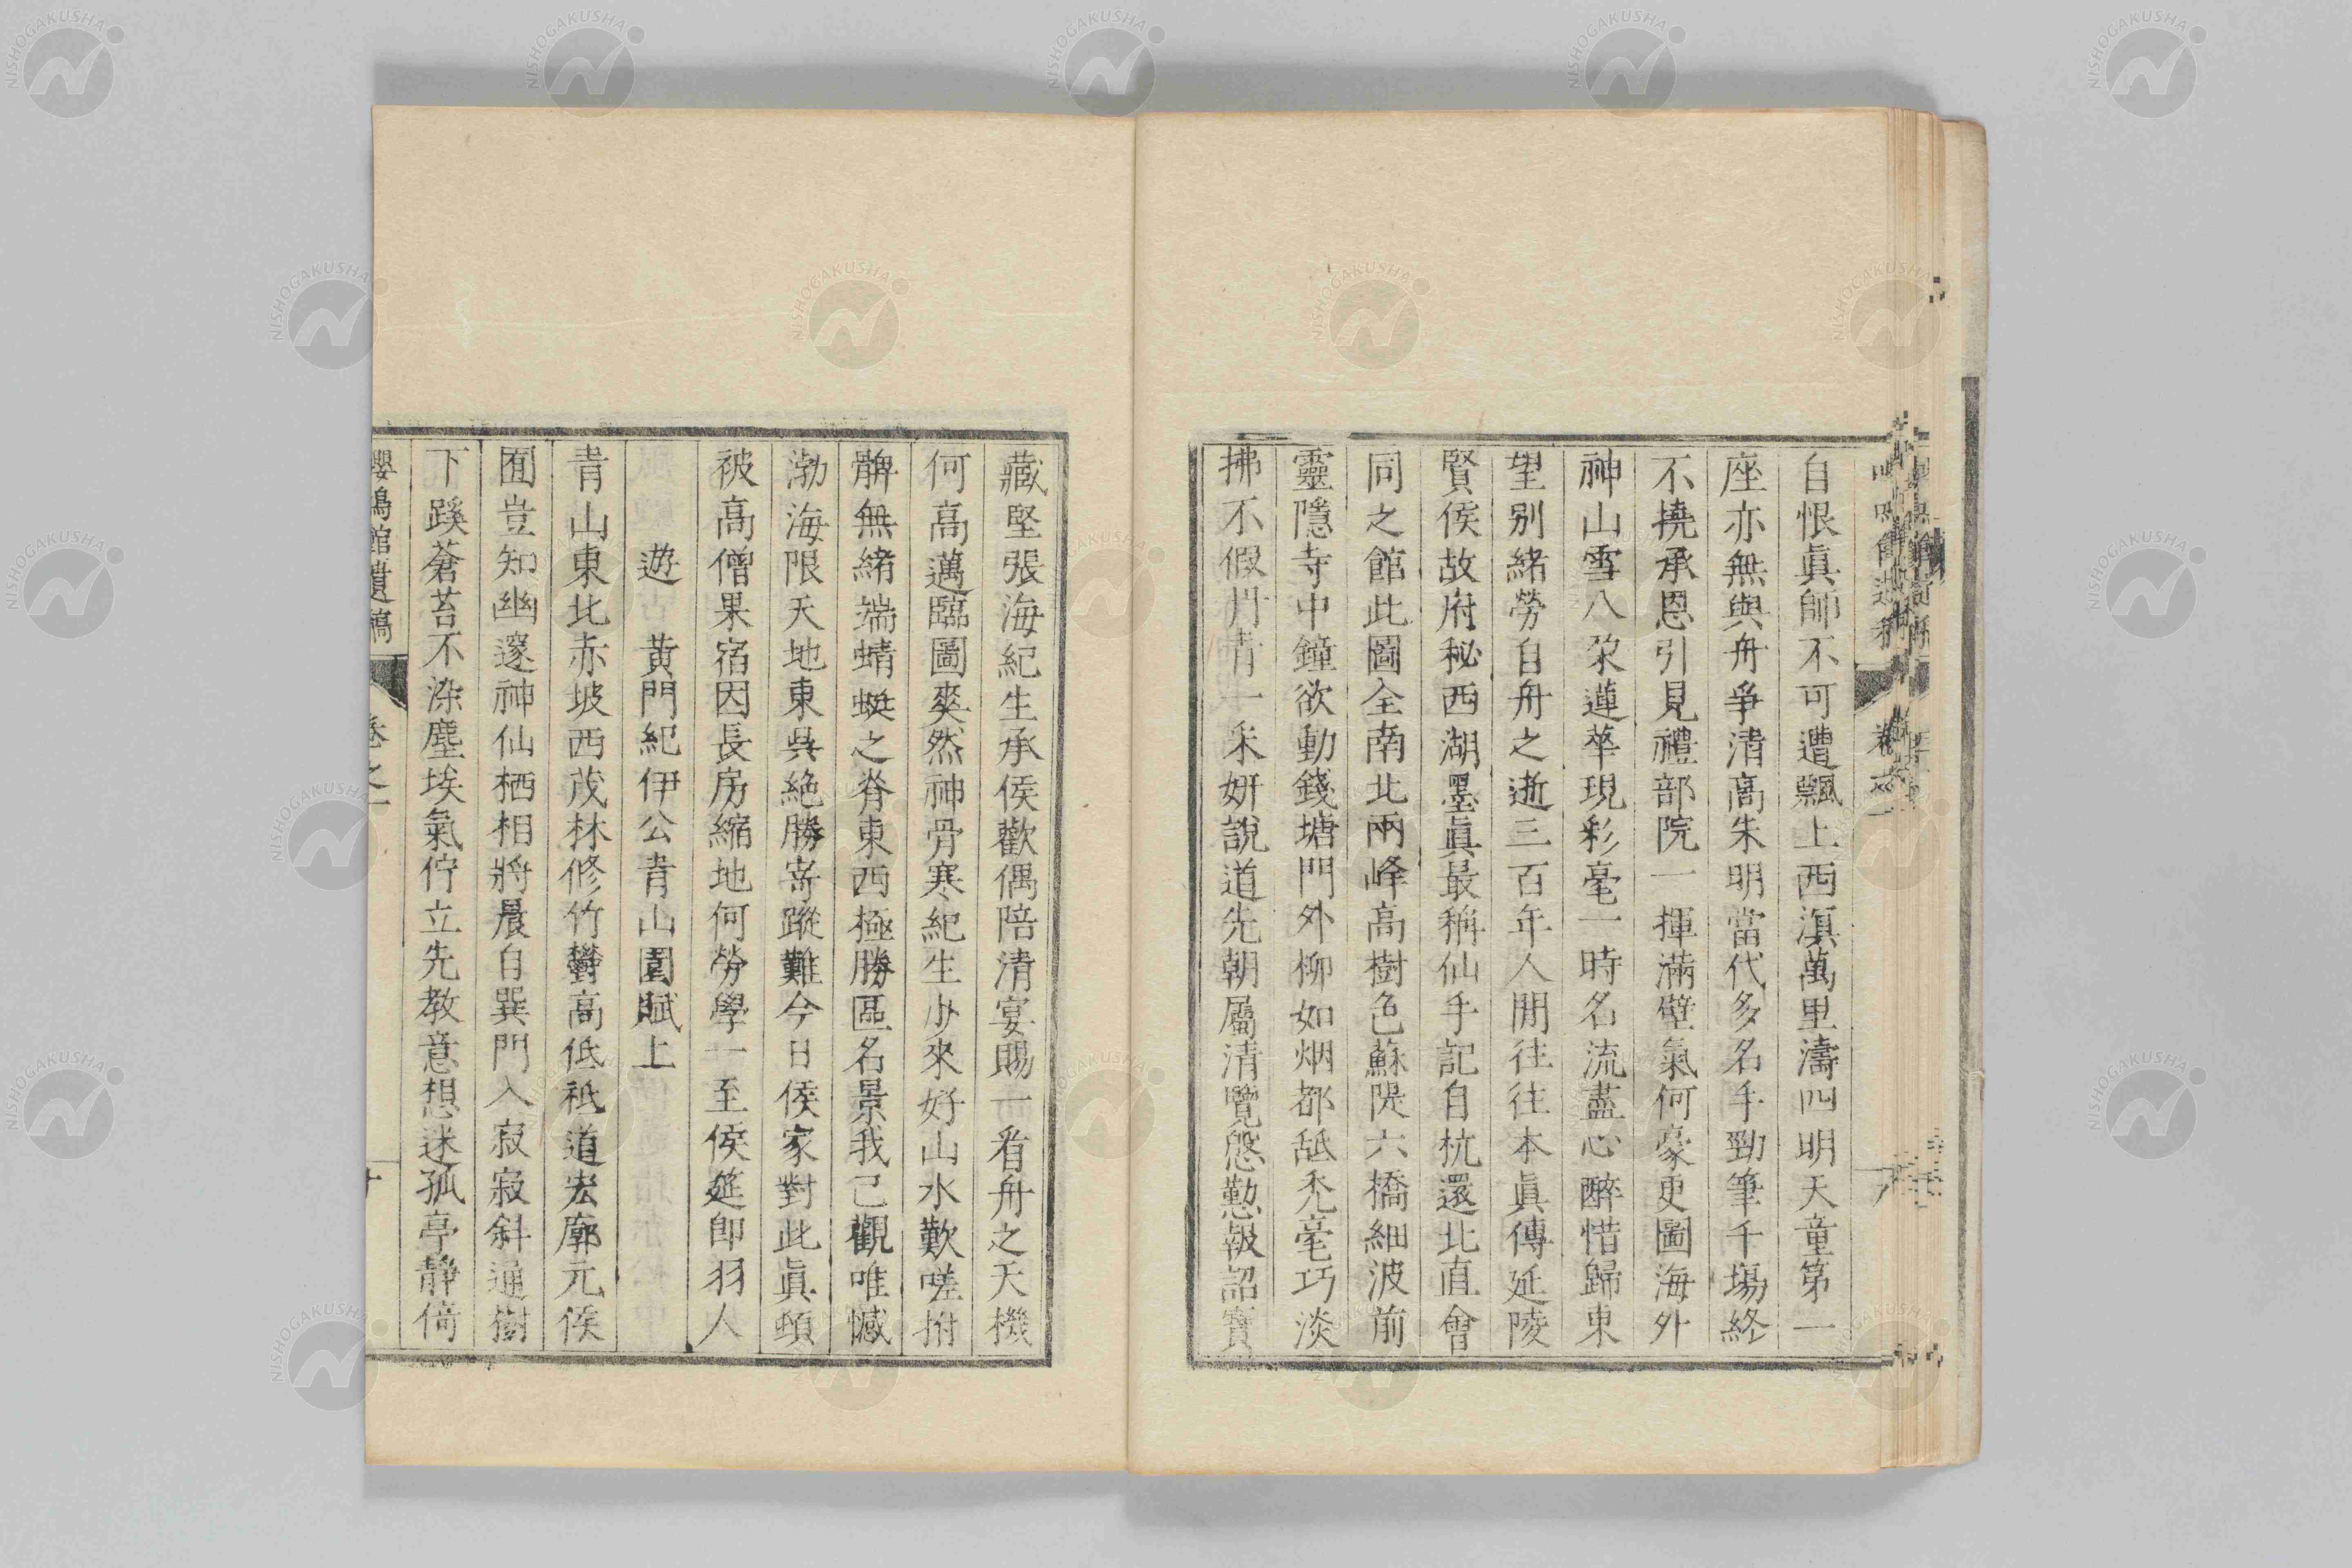 自恨眞師不可遭飄上西溟萬里濤四明天童第一
座亦無與舟爭清高朱明當代多名手勁筆千場終
不撓承恩引見禮部院一揮滿壁氣何豪更圖海外
神山雪八朶蓮華現彩毫一時名流盡心醉惜歸東
望別緒勞自舟之逝三百年人間往往本眞傳延陵
賢侯故府秘西湖墨眞最稱仙手記自杭還北直會
同之館此圖全南北兩峰高樹色蘇隄六橋細波前
靈隱寺中鐘欲動錢塘門外柳如烟都舐禿毫巧淡
拂不假丹靑一采妍說道先朝屬清覽慇懃報詔寶
藏堅張海紀生承侯歡偶陪清宴賜一看舟之天機
何高邁臨圖爽然神骨寒紀生少來好山水歎嗟拊
髀無緒端蜻蜓之脊東西極勝區名景我已觀唯憾
渤海限天地東吳絶勝寄蹤難今日侯家對此眞頓
被高僧果宿因長房縮地何勞學一至侯筵即羽人
遊 黃門紀伊公青山園賦上
青山東北赤坡西茂林修竹鬱高低祗道宏廓元侯
囿豈知幽邃神仙栖相將晨自巽門入寂寂斜通樹
下蹊蒼苔不染塵埃氣佇立先教意想迷孤亭靜倚
嚶鳴館遺稿 卷之一 十
NISHOGAKUSHA